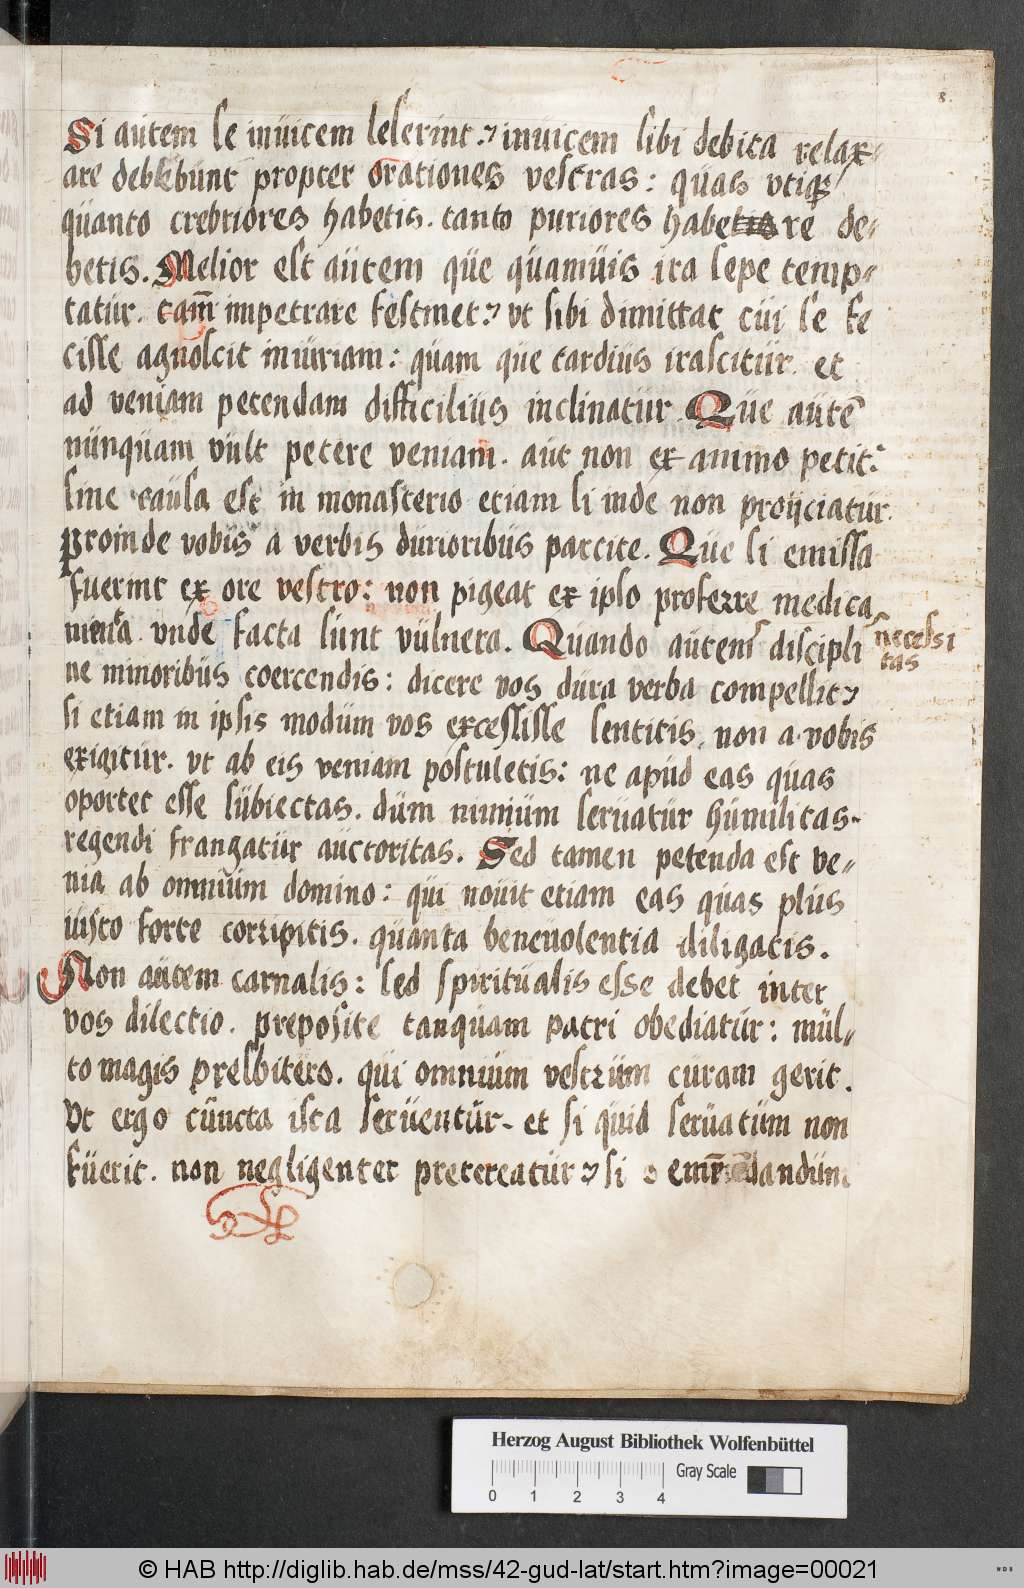 8.
Si autem se inuicem leserint: inuicem sibi debita relax-
are debebunt propter orationes vestras: quas vtiq3
quanto crebriores habetis. tanto puriores habere de-
betis. Melior est autem que quamuis ira sepe temp-
tatur. tam̄ impetrare festinet: vt sibi dimittat cui se fe
cisse agnoscit iniuriam: quam que tardius irascitur et
ad veniam petendam difficilius inclinatur Que autē
nunquam vult petere veniam. aut non ex animo petit:
sine causa est in monasterio etiam si inde non proijciatur.
proinde vobis a verbis durioribus parcite. Que si emissa
fuerint ex ore vestro: non pigeat ex ipso proferre medica
menta vnde facta sunt vulnera. Quando autem discipli
necessi
tas
ne minoribus coercendis: dicere vos dura verba compellit:
si etiam in ipsis modum vos excessisse sentitis, non a vobis
exigitur. vt ab eis veniam postuletis: ne apud eas quas
oportet esse subiectas. dum nimium seruatur humilitas-
regendi frangatur auctoritas. Sed tamen petenda est ve-
nia ab omnium domino: qui nouit etiam eas quas plus
iusto forte corripitis. quanta beneuolentia diligatis.
Non autem carnalis: sed spiritualis esse debet inter
vos dilectio. preposite tanquam patri obediatur: mul-
to magis presbitero. qui omnium vestrum curam gerit.
Vt ergo cuncta ista seruentur- et si quid seruatum non
fuerit. non negligenter pretereatur: si emendandum
Herzog August Bibliothek Wolfenbüttel
Gray Scale
0 1 2 3 4
© HAB http://diglib.hab.de/mss/42-gud-lat/start.htm?image=00021